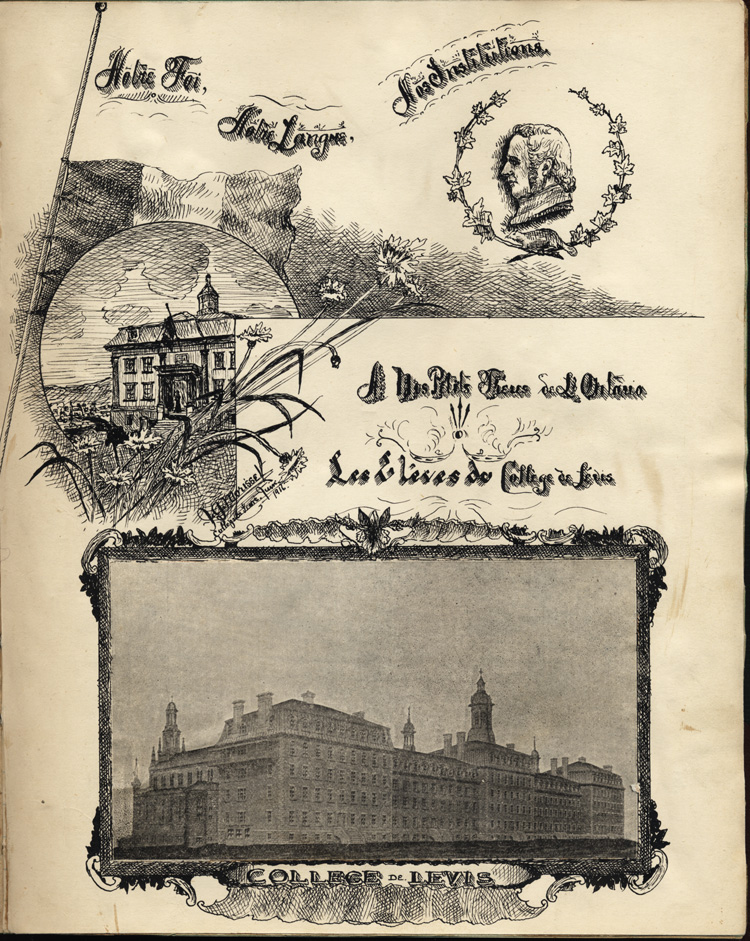 Notre Foi,
Notre Langue,
Nos Institutions.
A Nos Petits Freres de L'Ontario
Les Elèves du College de Lévis
COLLEGE DE LEVIS